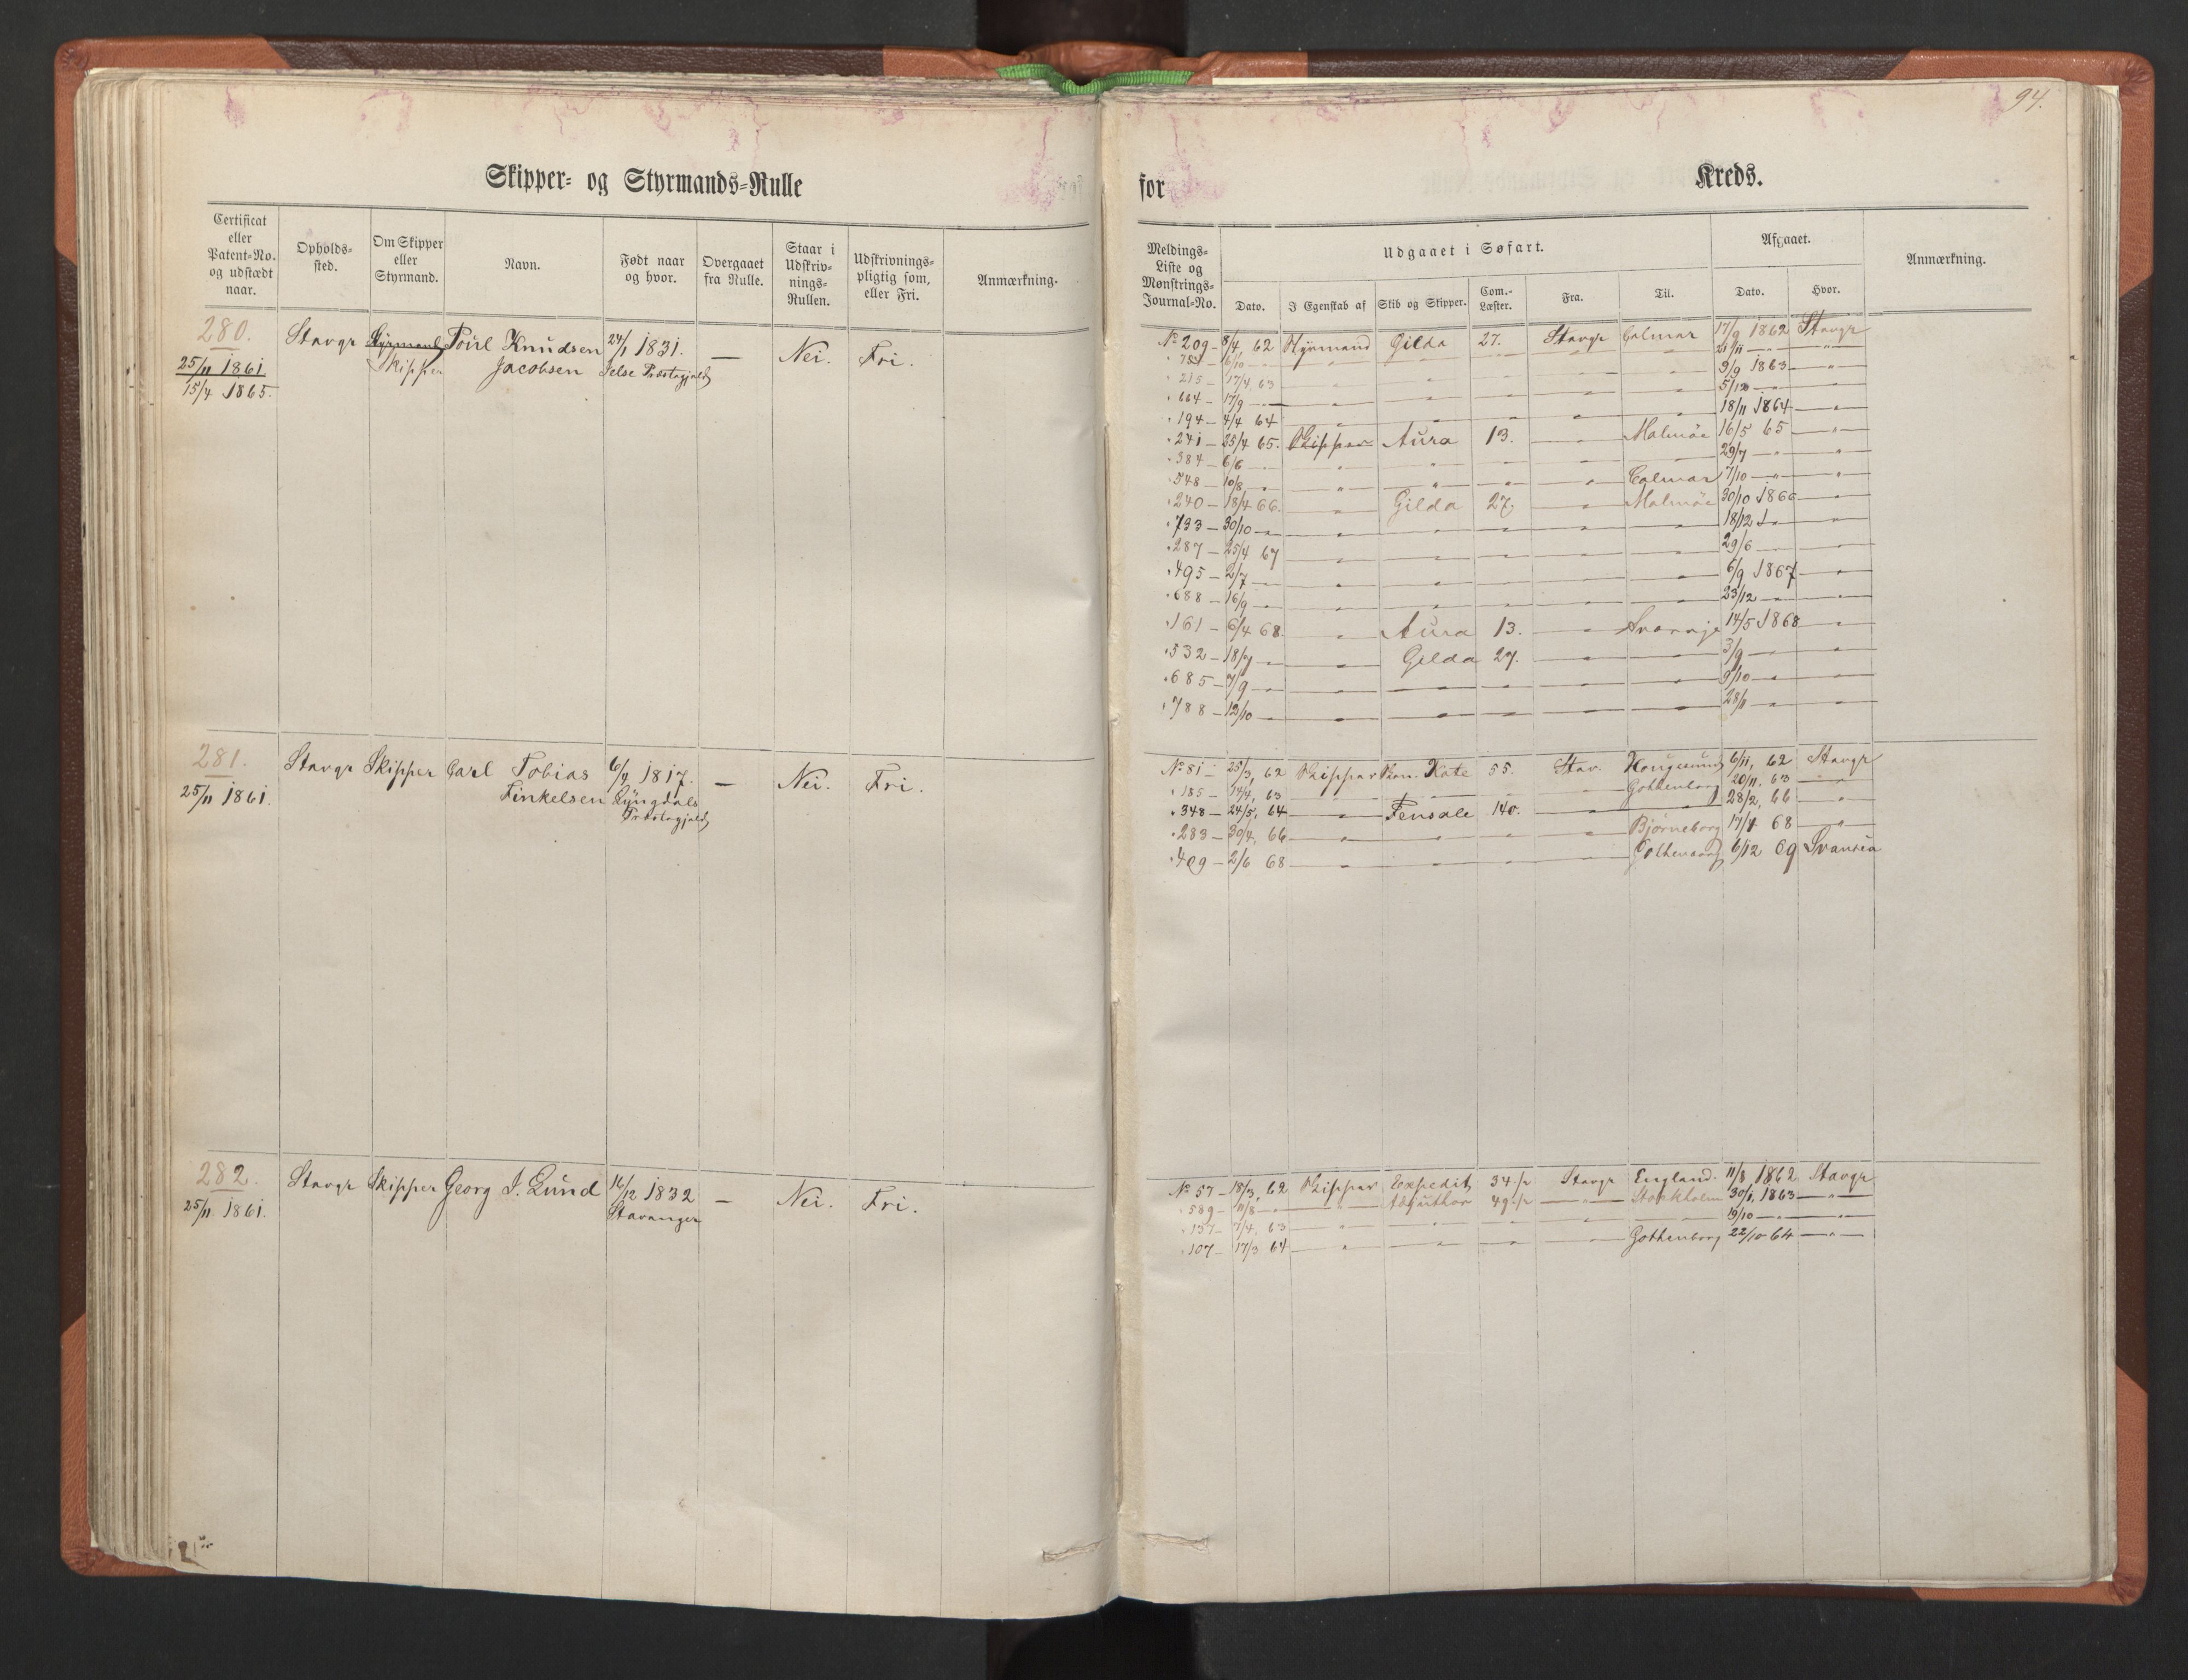 94.
Skipper- og Styrmands-Rulle
for Kreds.
Certificat eller Patent-No. og udstædt naar.
Opholds-sted.
Om Skipper eller Styrmand.
Navn.
Født naar og hvor.
Overgaaet fra Rulle.
Staar i Udskriv-nings-Rullen.
Udskrivnings-pligtig som, eller Fri.
Anmærkning.
Meldings-Liste og Mønstrings-Journal-No.
Udgaaet i Søfart.
Dato.
I Egenskab af
Skib og Skipper.
Com.-Læster.
Fra.
Til.
Afgaaet.
Dato.
Hvor.
Anmærkning.
280. Stavgr Styrmand Poul Knudsen 24/1 1831. — Nei. Fri.
25/11 1861 Skipper Jacobsen Præstegjeld
15/4 1865.
No 209 – 8/4 62 Styrmand Gilda 27. Stavgr Calmar 17/9 1862 Stavgr
6/10 — " 21/11 — "
" 215 – 17/4 63 " 9/9 1863 — "
" 664 – 17/9 — " 5/12 — "
" 194 – 4/4 64 " 18/11 1864 — "
" 241 – 25/4 65. Skipper Aura 13. — Malmöe 16/5 65 — "
" 384 – 6/6 — " 29/7 — "
" 548 – 10/8 — " Calmar 7/10 — "
" 240 – 18/4 66. — " Gilda 27. — Malmöe 30/10 1866 — "
" 793 – 30/10 — " 18/12 — "
" 287 – 25/4 67 — " 29/6 — "
" 495 – 2/7 — " 6/9 1867 — "
" 688 – 16/9 — " 23/12 — "
" 161 – 6/4 68. " Aura 13. — 14/5 1868 — "
" 532 – 18/7 — " Gilda 27. — 3/9 — "
" 685 – 7/9 — " 9/10 — "
" 788 – 12/10 — " 28/11 — "
281. Stavgr Skipper Carl Tobias 6/9 1817. — Nei. Fri.
25/11 1861. Finkelsen Lyngdals
Præstegjeld
No 81 – 25/3, 62 Skipper Kate 55. Stav. Hougesund 6/11, 62 Stavgr
" 185 – 14/4, 63 — Gothenborg 20/11. 63 — "
" 348 – 24/5, 64 — " Fensale 140. — 28/2, 66 — "
" 283 – 30/4, 66 — " Bjørneborg 17/4 68 — "
" 409 – 2/6 68 — " Gothenborg 6/12 69 Svansea
282. Stavgr Skipper Georg J. Lund 16/12 1832 — Nei. Fri.
25/11 1861. Stavanger
No 57 – 18/3, 62 Skipper Expedit 34 Stavgr England. 11/8 1862 Stavgr
" 589 – 11/8 — " 49 — " Stockholm 30/1, 1863 — "
" 137 – 7/4, 63 — " 19/10 — "
" 107 – 17/3 64 — " Gothenborg 22/10 64 — "